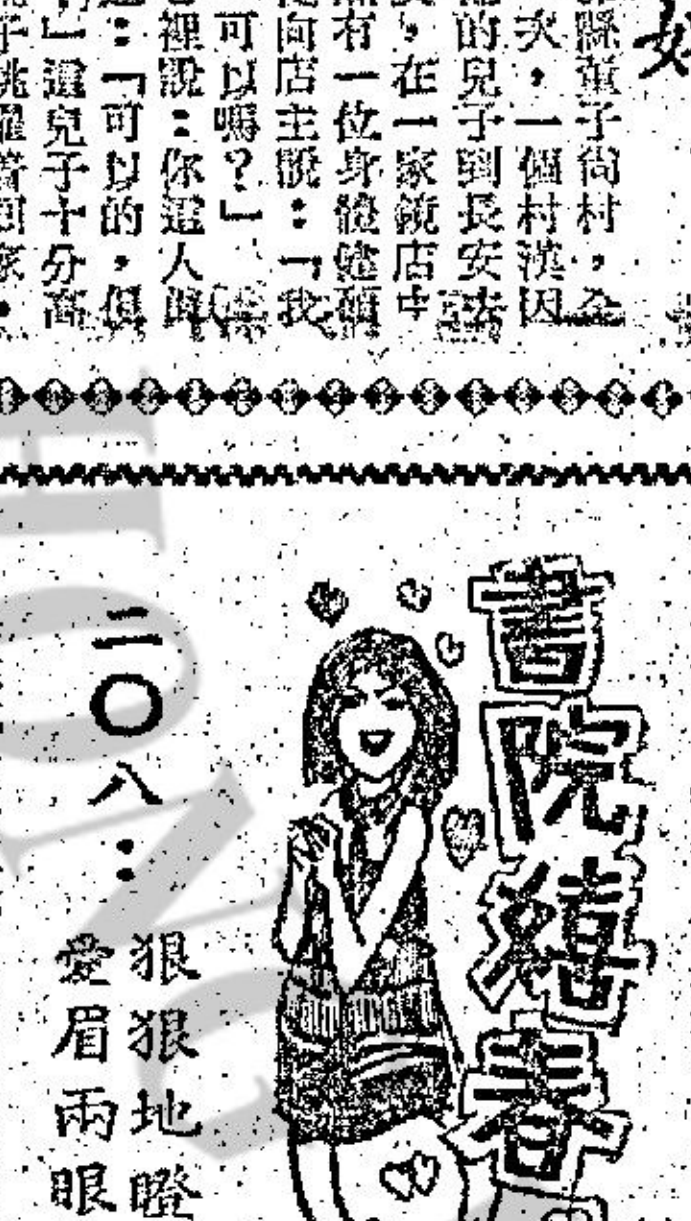 縣董子尚村，
次，一個村漢因
的兒子到長安去
，在一家鏡店中
有一位身體健碩
向店主說：「我
可以嗎？」
裡說：你這人
：「可以的，但
」這兒子十分高
跳躍着回家，
書院春
二〇八：
狠狠地瞪
愛眉兩眼